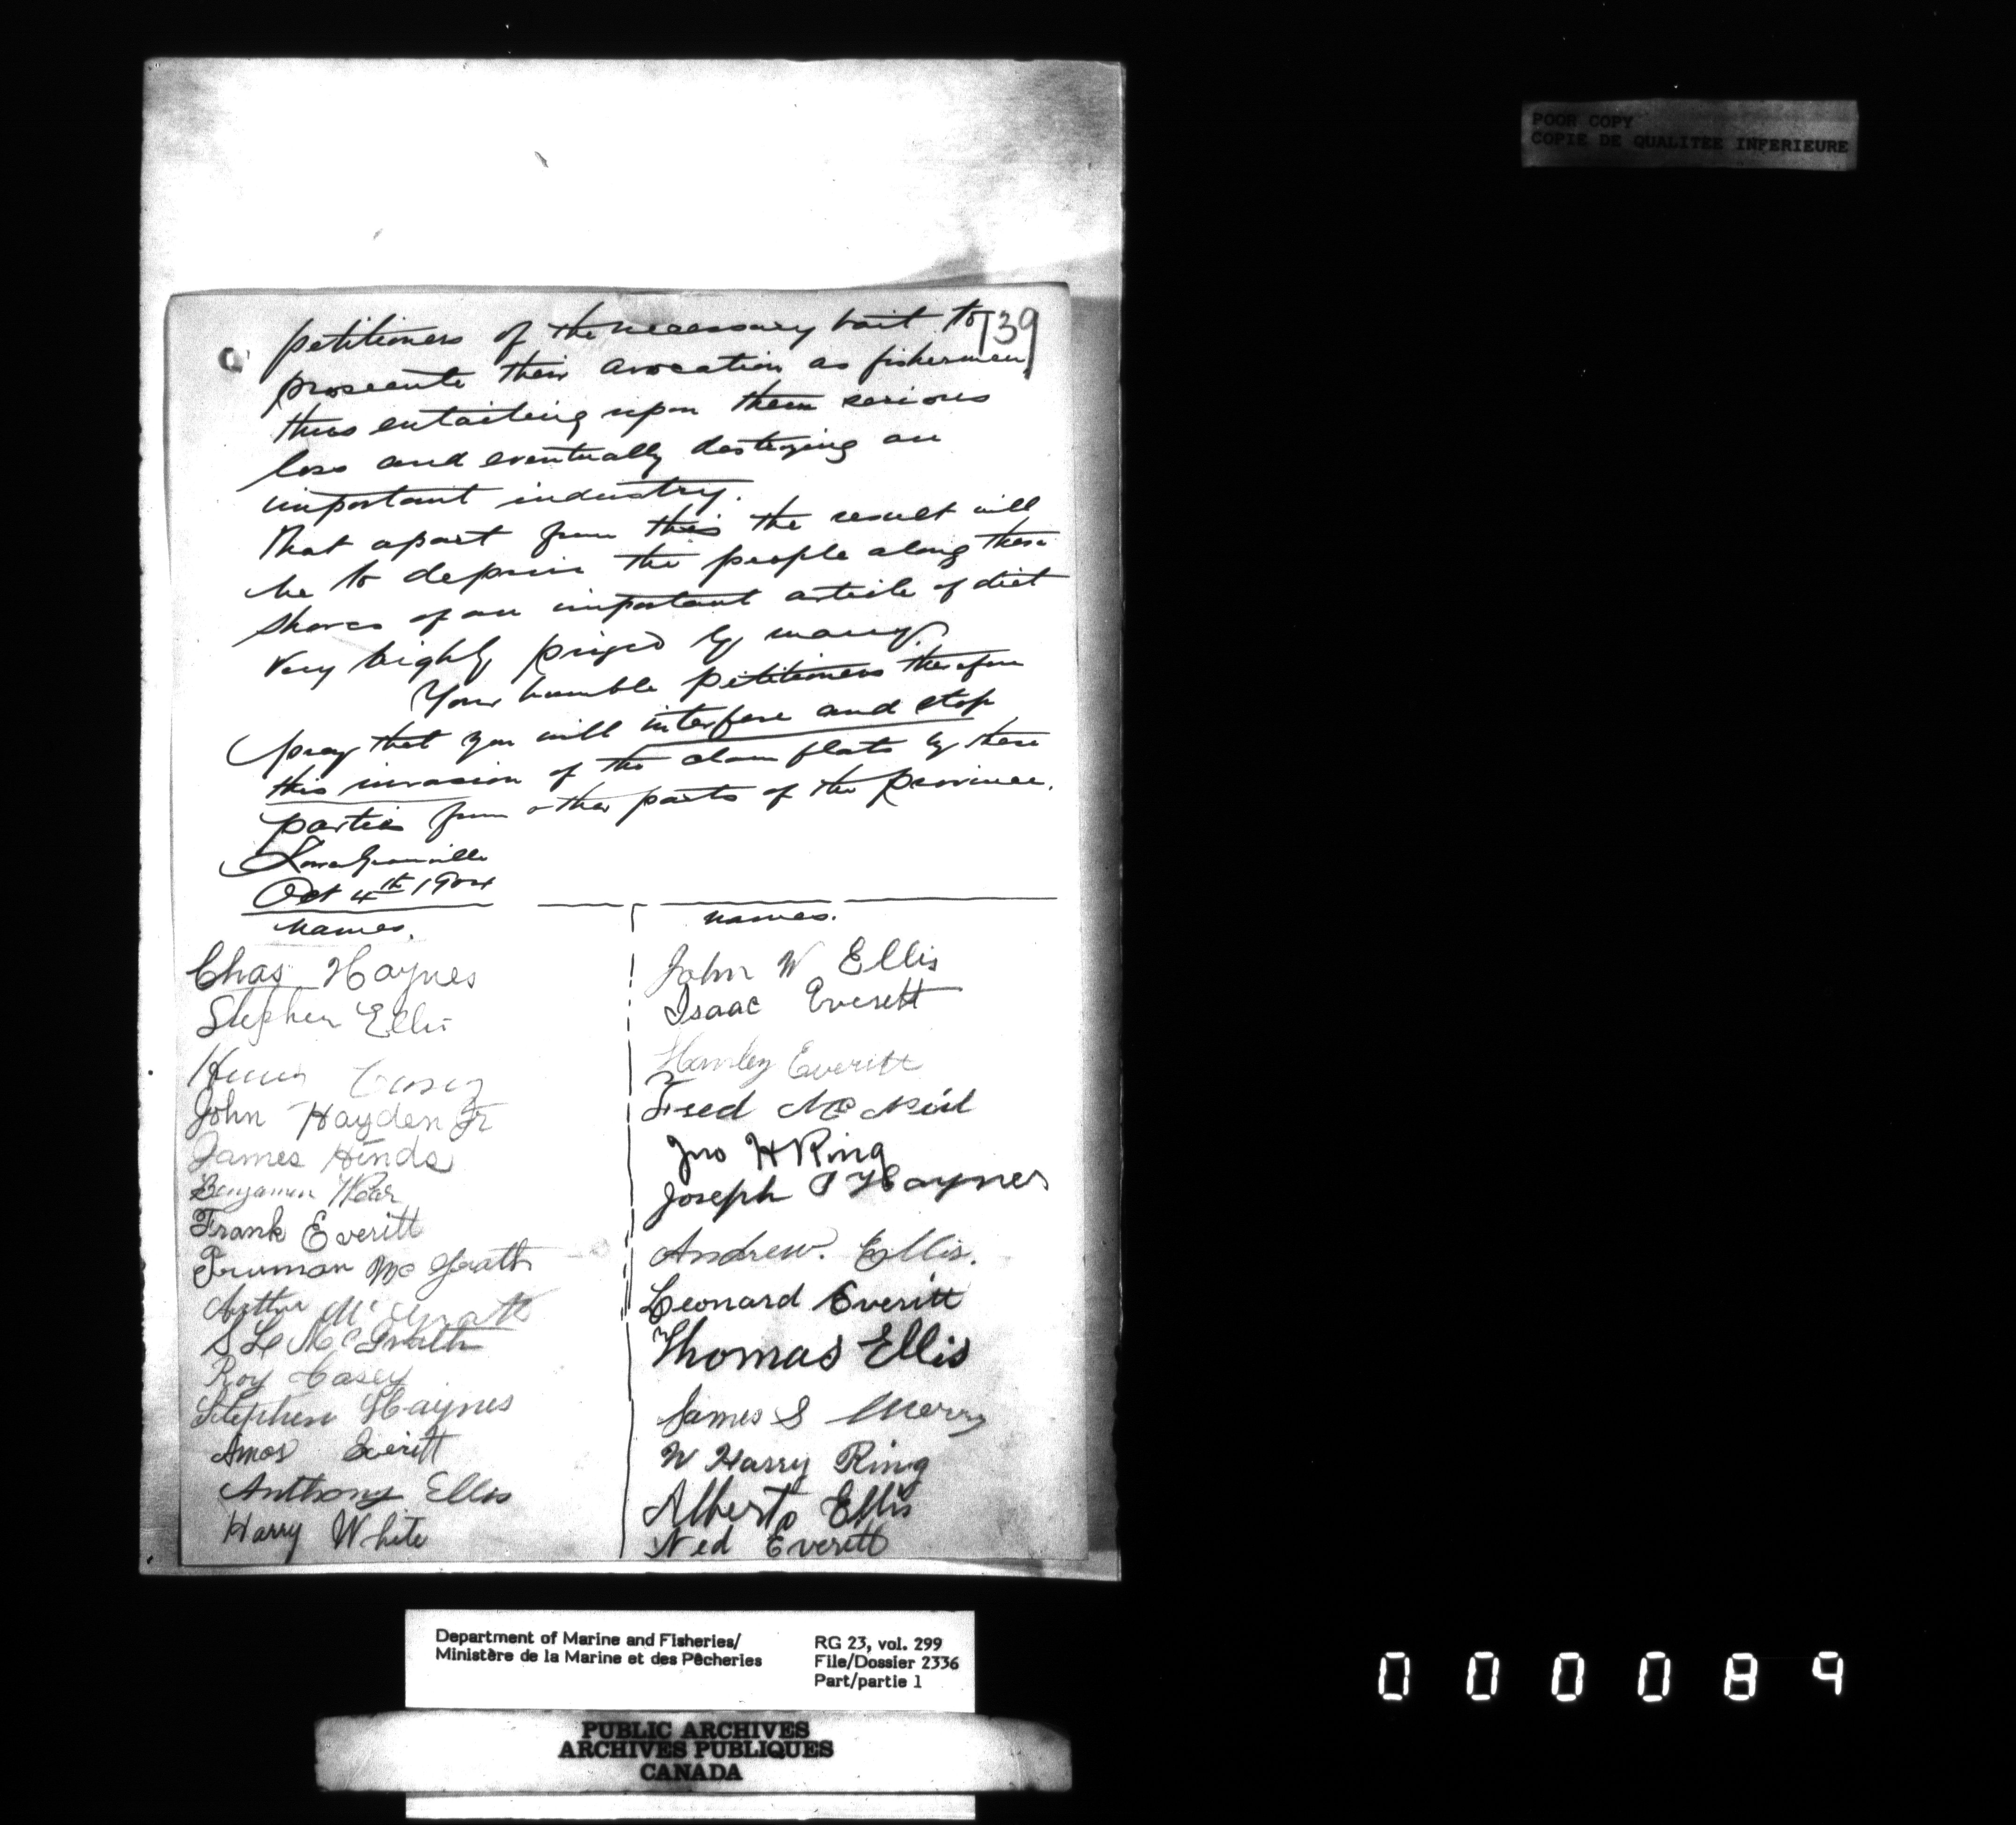 POOR COPY
COPIE DE QUALITEE INFERIEURE
139
petitioners of the necessary bait to
prosecute their avocation as fishermen
thus entailing upon them serious
loss and eventually destroying an
important industry.
That apart from this the result will
be to deprive the people along these
shores of an important article of diet
very highly prized by many.
Your humble petitioners therefore
pray that you will interfere and stop
this invasion of the clam flats by these
parties from other parts of the province.
Lower Granville
Oct 4th 1904
names.
Chas Haynes
Stephen Ellis
Casey
John Hayden Jr
James Hinds
Benjamin
Frank Everitt
Truman Mc Grath
Arthur McGrath
S L McGrath
Roy Casey
Stephen Haynes
Amos Everitt
Anthony Ellis
Harry White
names.
John W Ellis
Isaac Everett
Everitt
Fred McNeil
Jno H Ring
Joseph Haynes
Andrew. Ellis.
Leonard Everitt
Thomas Ellis
James S Morry
W Harry Ring
Albert Ellis
Ned Everett
Department of Marine and Fisheries/
Ministère de la Marine et des Pêcheries
RG 23, vol. 299
File/Dossier 2336
Part/partie 1
PUBLIC ARCHIVES
ARCHIVES PUBLIQUES
CANADA
000089